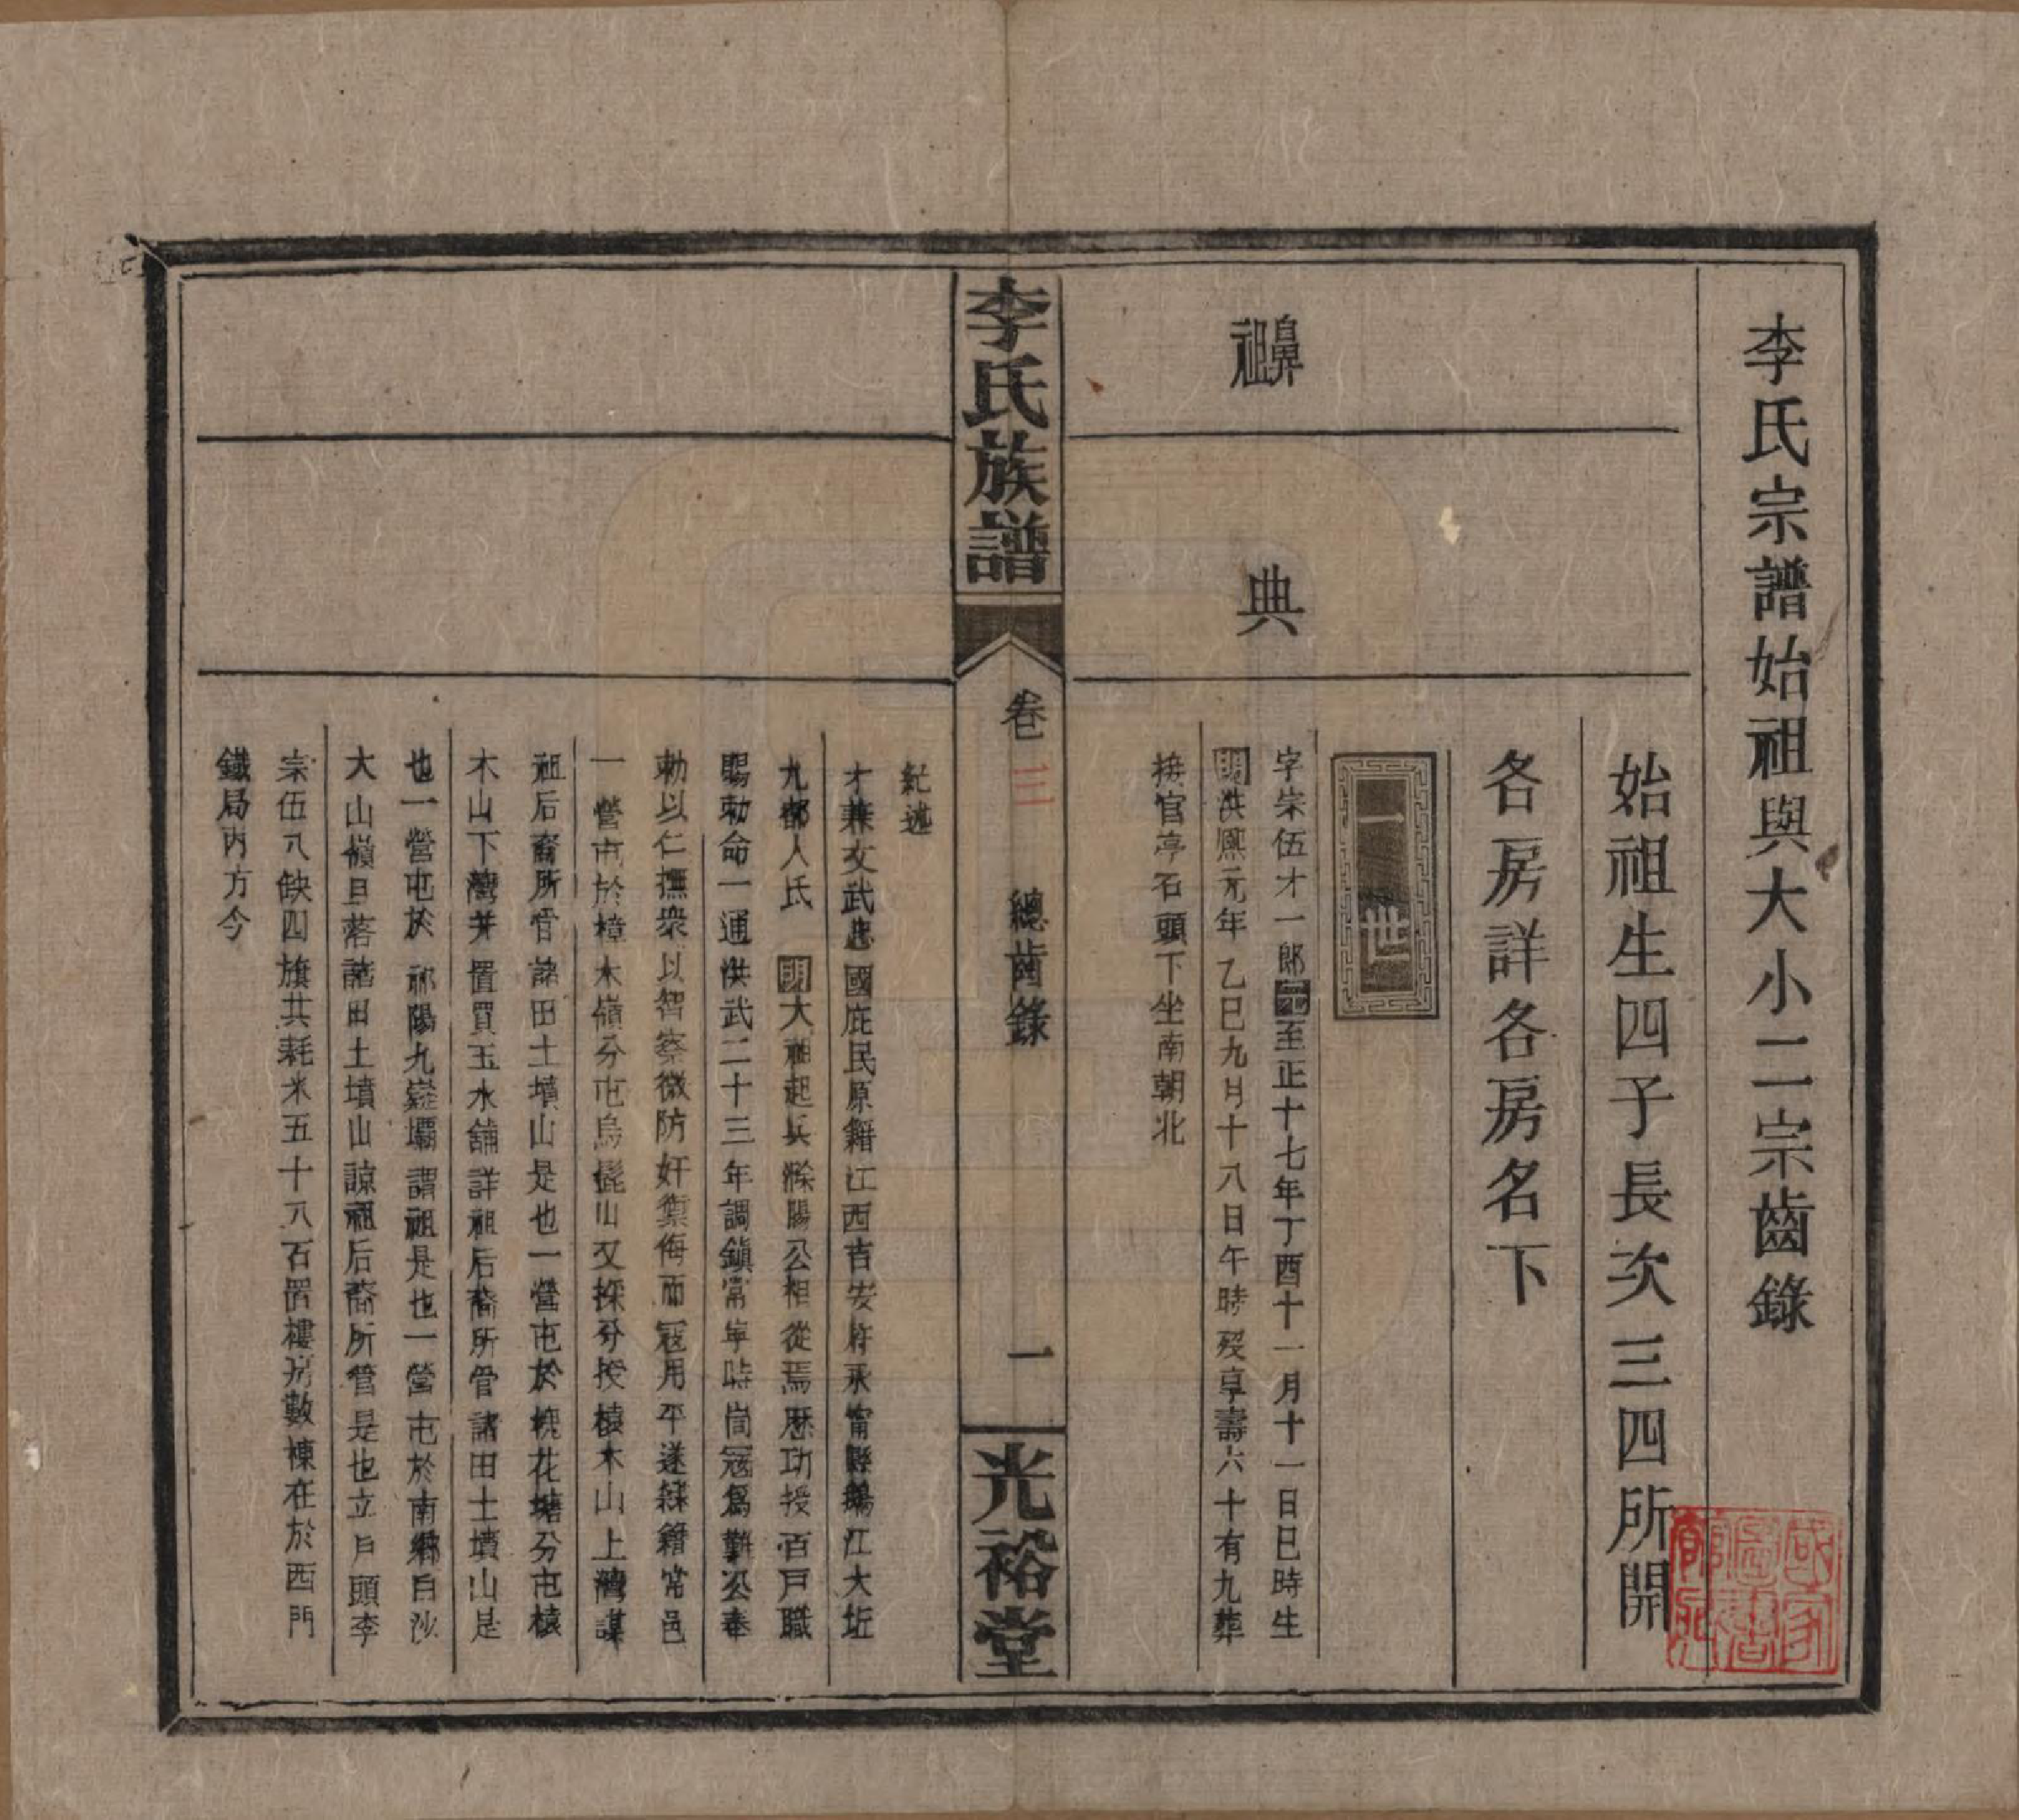 李氏宗譜始祖與大小二宗齒錄
始祖生四子長次三四所開
各房詳各房名下
一世
鼻祖
典
字宗伍才一郎元至正十七年丁酉十一月十一日巳時生
明洪熙元年乙巳九月十八日午時歿享壽六十有九葬
接官亭石頭下坐南朝北
李氏族譜
卷三
總齒錄
一
光裕堂
紀述
才兼文武忠國庇民原籍江西吉安府永甯縣鵝江大坵
九都人氏 明大祖起兵滁陽公相從焉歷功授百戸職
賜勅命一通洪武二十三年調鎮常寧時峝冦爲艱公奉
勅以仁撫衆以智察微防奸禦侮而冦用平遂錄籍常邑
一營屯於樟木嶺分屯烏髭山又採分授檬木山上灣謀
祖后裔所管諸田土墳山是也一營屯於桃花塘分屯檬
木山下灣并置買玉水舖詳祖后裔所管諸田土墳山是
也一營屯於祁陽九嶷壩謂祖是也一營屯於南鄉白沙
大山嶺旦落諸田土墳山諒祖后裔所管是也立戸頭李
宗伍八缺四旗共耗米五十八石置樓房數棟在於西門
鐵局內方今